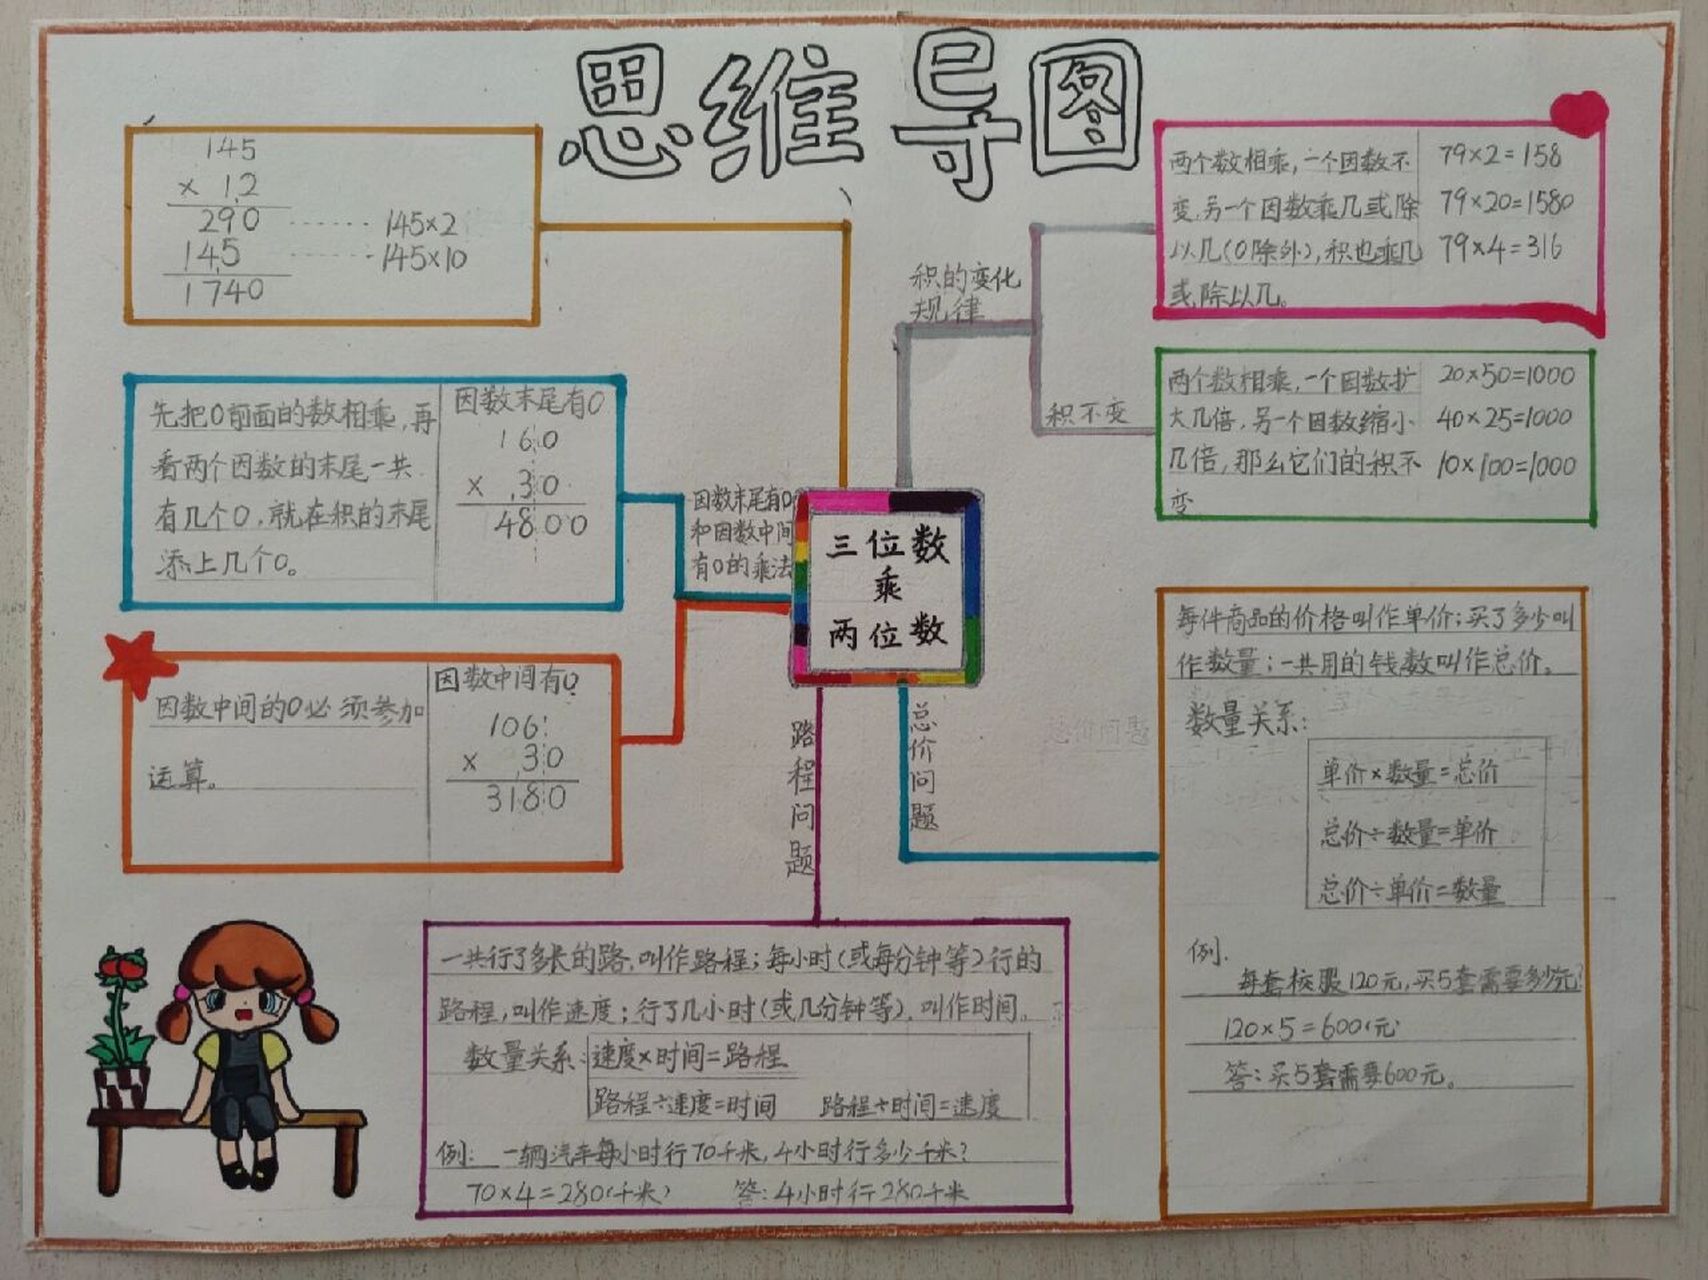 思维导图
145
× 12
290 ······· 145×2
145 ······· 145×10
1740
先把0前面的数相乘,再
看两个因数的末尾一共
有几个0,就在积的末尾
添上几个0。
因数末尾有0
160
× 30
4800
因数中间的0必须参加
运算。
因数中间有0
106
× 30
3180
因数末尾有0
和因数中间
有0的乘法
三位数
乘
两位数
积的变化
规律
积不变
两个数相乘,一个因数不
变,另一个因数乘几或除
以几(0除外),积也乘几
或除以几。
79×2=158
79×20=1580
79×4=316
两个数相乘,一个因数扩
大几倍,另一个因数缩小
几倍,那么它们的积不
变
20×50=1000
40×25=1000
10×100=1000
路程问题
总价问题
每件商品的价格叫作单价;买了多少叫
作数量;一共用的钱数叫作总价。
数量关系:
单价×数量=总价
总价÷数量=单价
总价÷单价=数量
例.
每套校服120元,买5套需要多少元?
120×5=600(元)
答:买5套需要600元。
一共行了多长的路,叫作路程;每小时(或每分钟等)行的
路程,叫作速度;行了几小时(或几分钟等),叫作时间。
数量关系:速度×时间=路程
路程÷速度=时间 路程÷时间=速度
例: 一辆汽车每小时行70千米,4小时行多少千米?
70×4=280(千米) 答:4小时行280千米